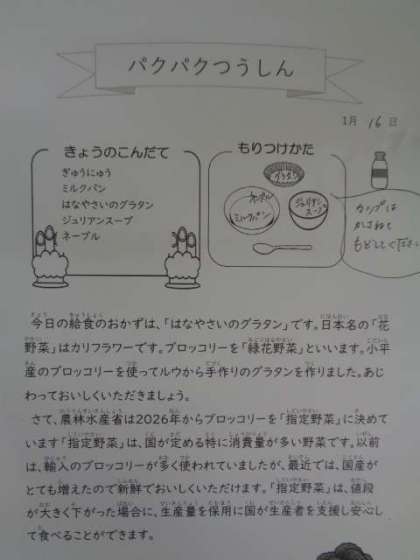 パクパクつうしん
1月 16 日
きょうのこんだて
ぎゅうにゅう
ミルクパン
はなやさいのグラタン
ジュリアンスープ
ネーブル
もりつけかた
グラタン
ネーブル
ミルクパン
ジュリアン
スープ
カップは
かさねて
もどしてください
今日の給食のおかずは、「はなやさいのグラタン」です。日本名の「花
野菜」はカリフラワーです。ブロッコリーを「緑花野菜」といいます。小平
産のブロッコリーを使ってルウから手作りのグラタンを作りました。あじ
わっておいしくいただきましょう。
さて、農林水産省は2026年からブロッコリーを「指定野菜」に決めて
います「指定野菜」は、国が定める特に消費量が多い野菜です。以前
は、輸入のブロッコリーが多く使われていましたが、最近では、国産が
とても増えたので新鮮でおいしくいただけます。「指定野菜」は、値段
が大きく下がった場合に、生産量を保用に国が生産者を支援し安心し
て食べることができます。